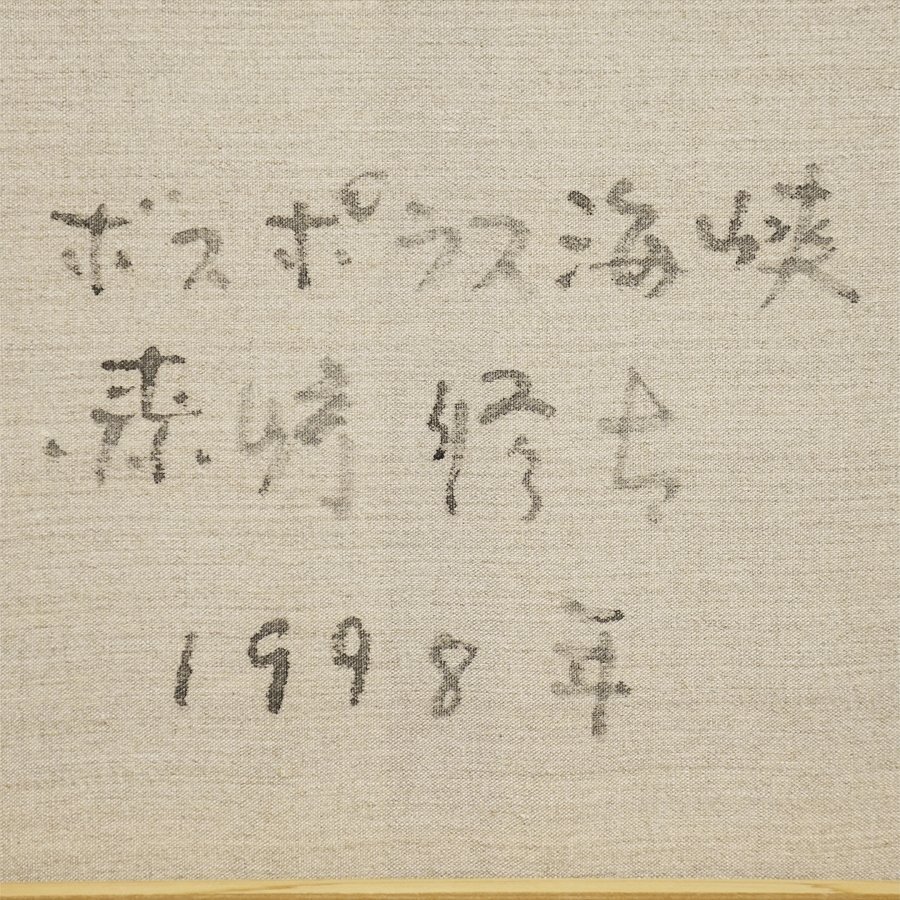 ボスポラス海峡
森崎 修
1998年